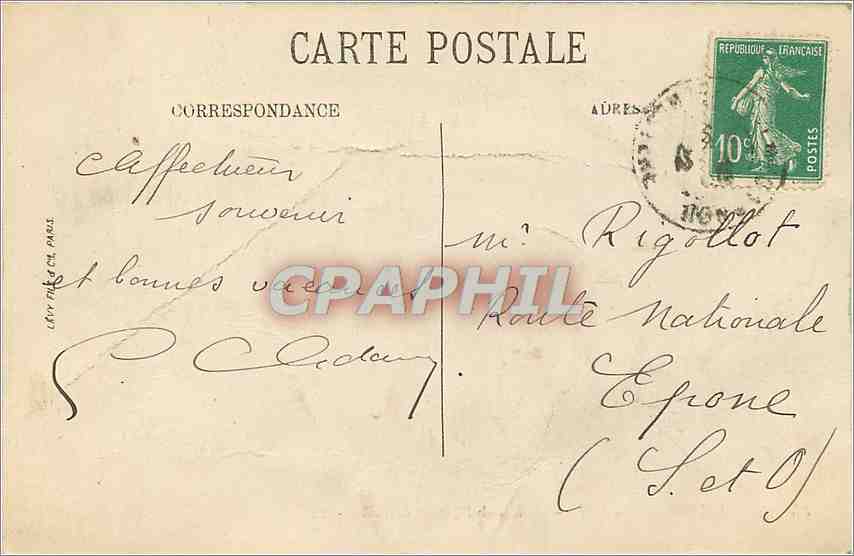 CARTE POSTALE
CORRESPONDANCE
ADRES
RÉPUBLIQUE FRANÇAISE
10c
POSTES
Affectueux
souvenir
et bonnes vacances
P.
Mr. Rigollot
Route Nationale
Epone
(S. et O)
LÉVY FILS & Cie, PARIS.
CPAPHIL